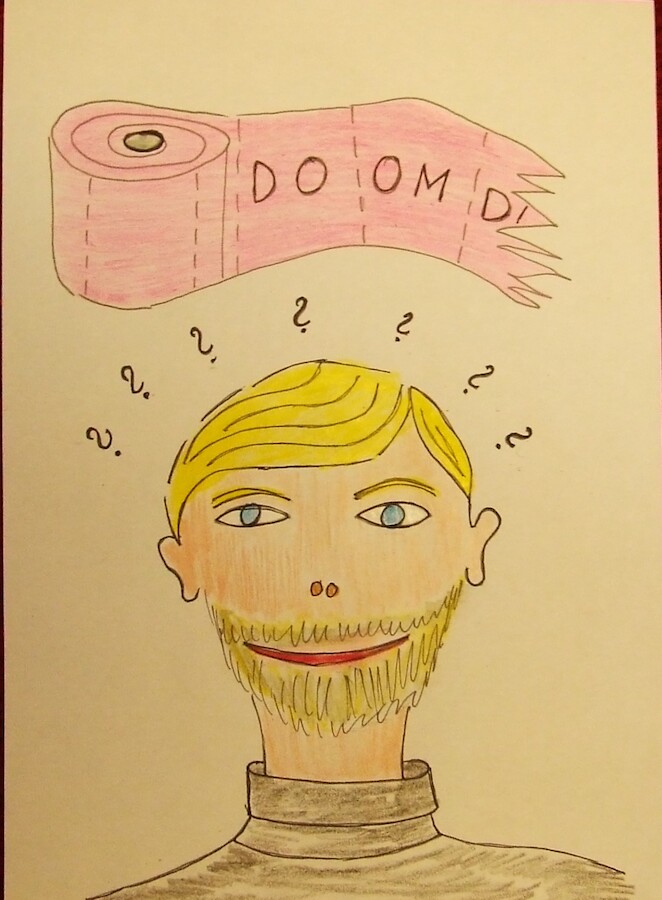 DO OM D
? ? ? ? ? ? ?